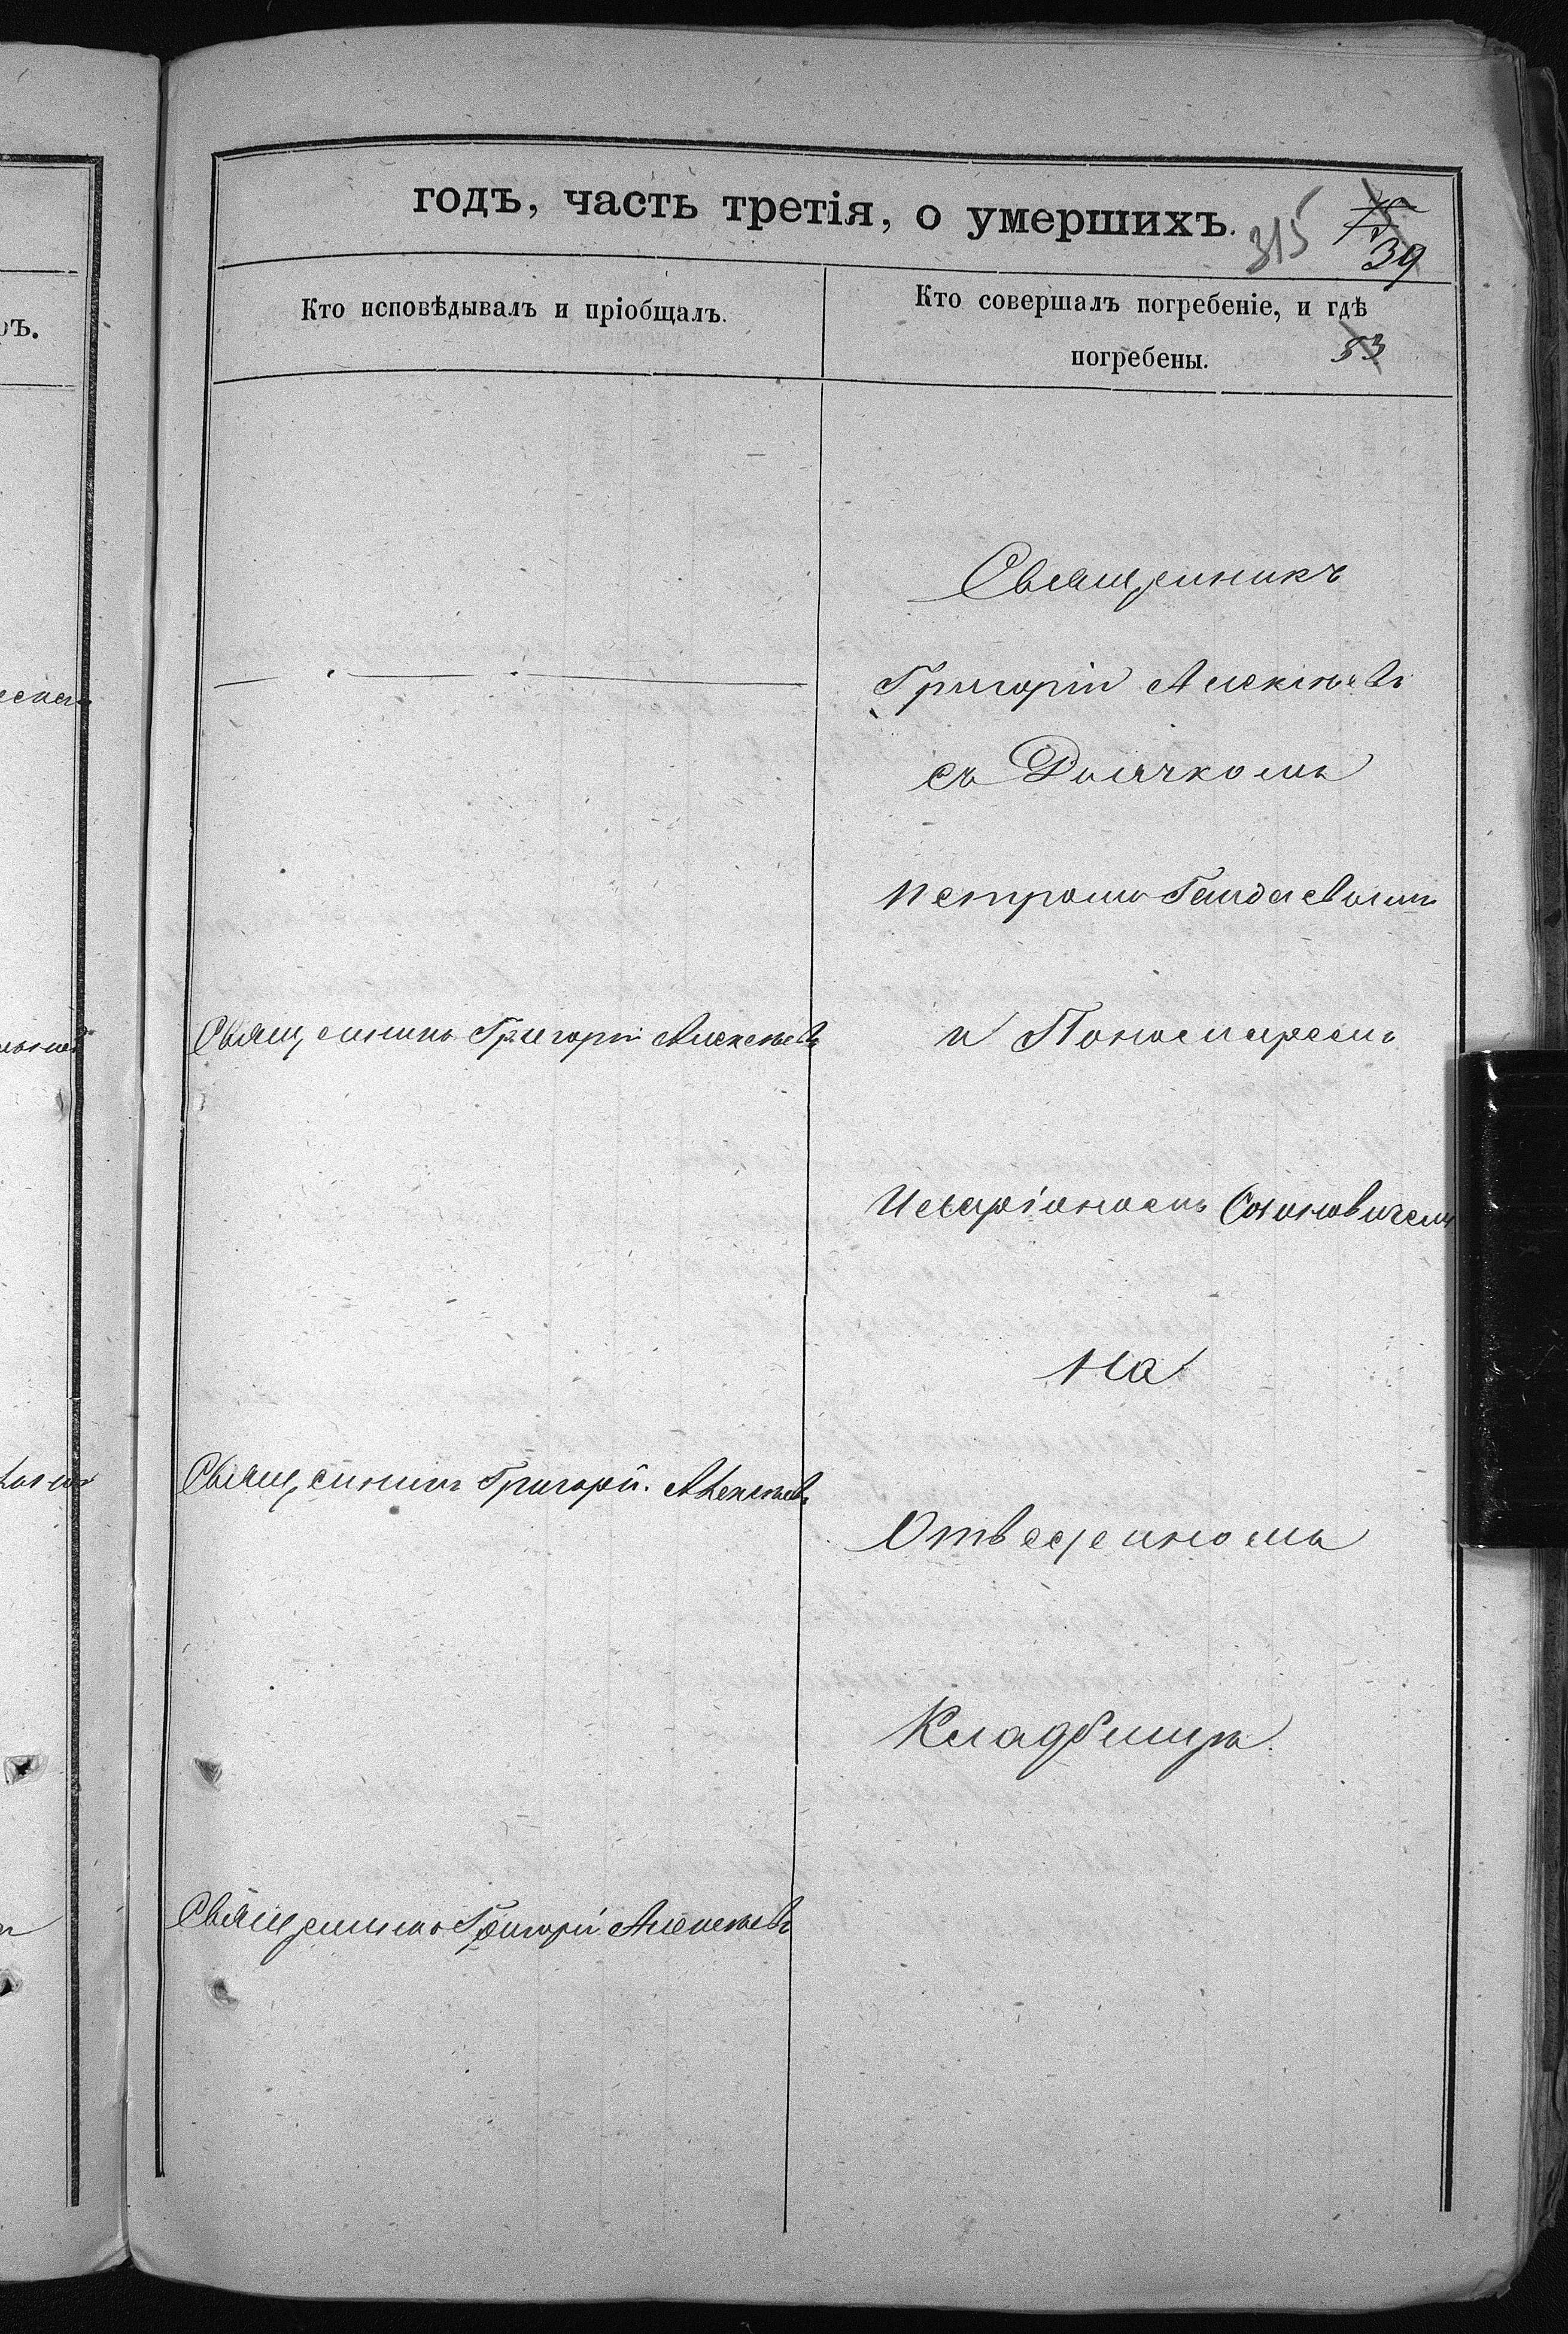 годъ, часть третія, о умершихъ.
315
75
39
Кто исповѣдывалъ и пріобщалъ.
Кто совершалъ погребеніе, и гдѣ
погребены.
53
Священникъ
Григорій Алексѣевъ
съ Дьячкомъ
Петромъ
Священникъ Григорій Алексѣевъ
и Пономаремъ
Иларіономъ
На
Священникъ Григорій Алексѣевъ
Отведенномъ
Кладбищѣ.
Священникъ Григорій Алексѣевъ